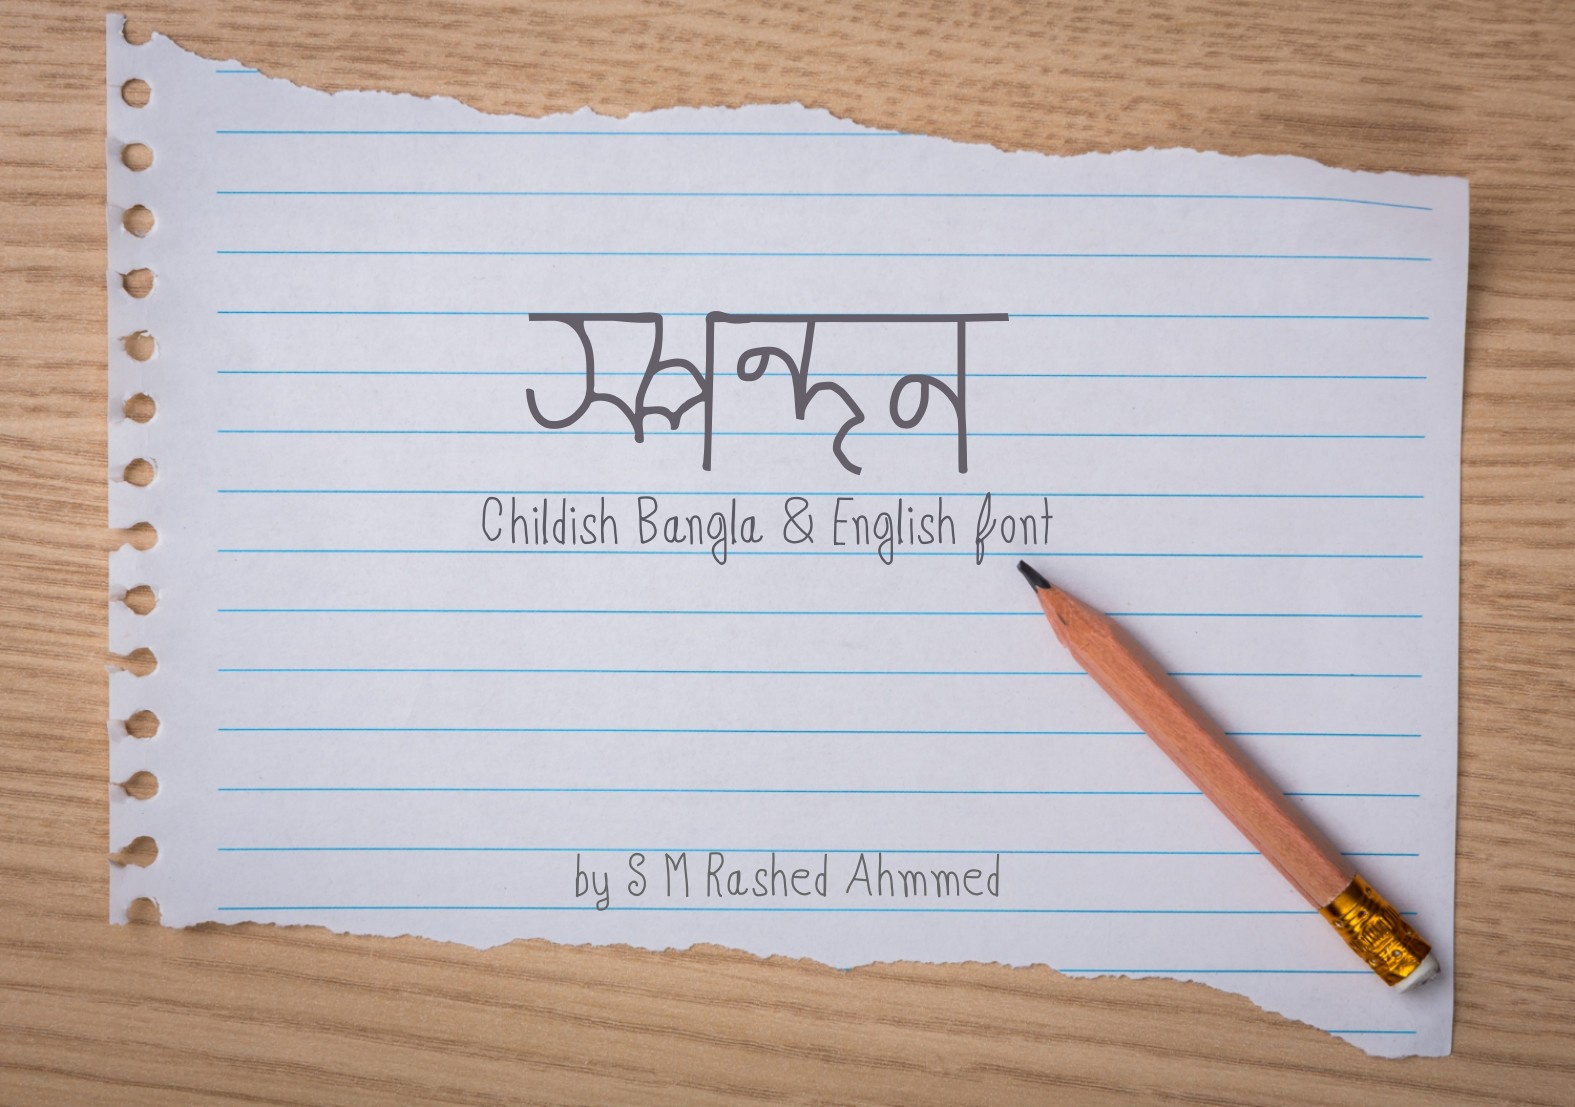 স্পন্দন
Childish Bangla & English font
by S M Rashed Ahmmed